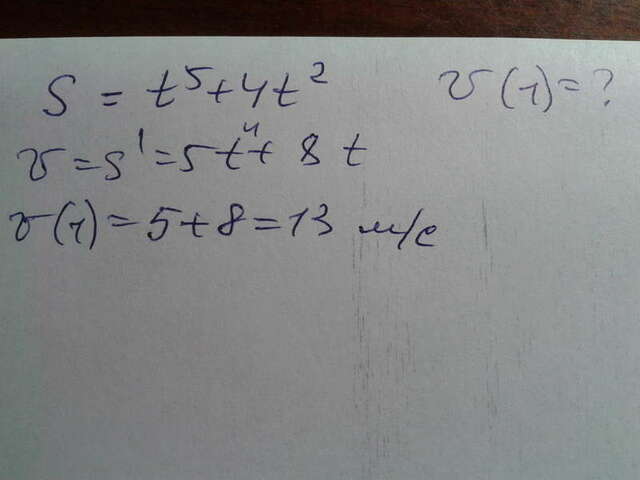 S = t⁵+4t² v(1)=?
v=s'=5t⁴+ 8 t
v(1)=5+8=13 м/с